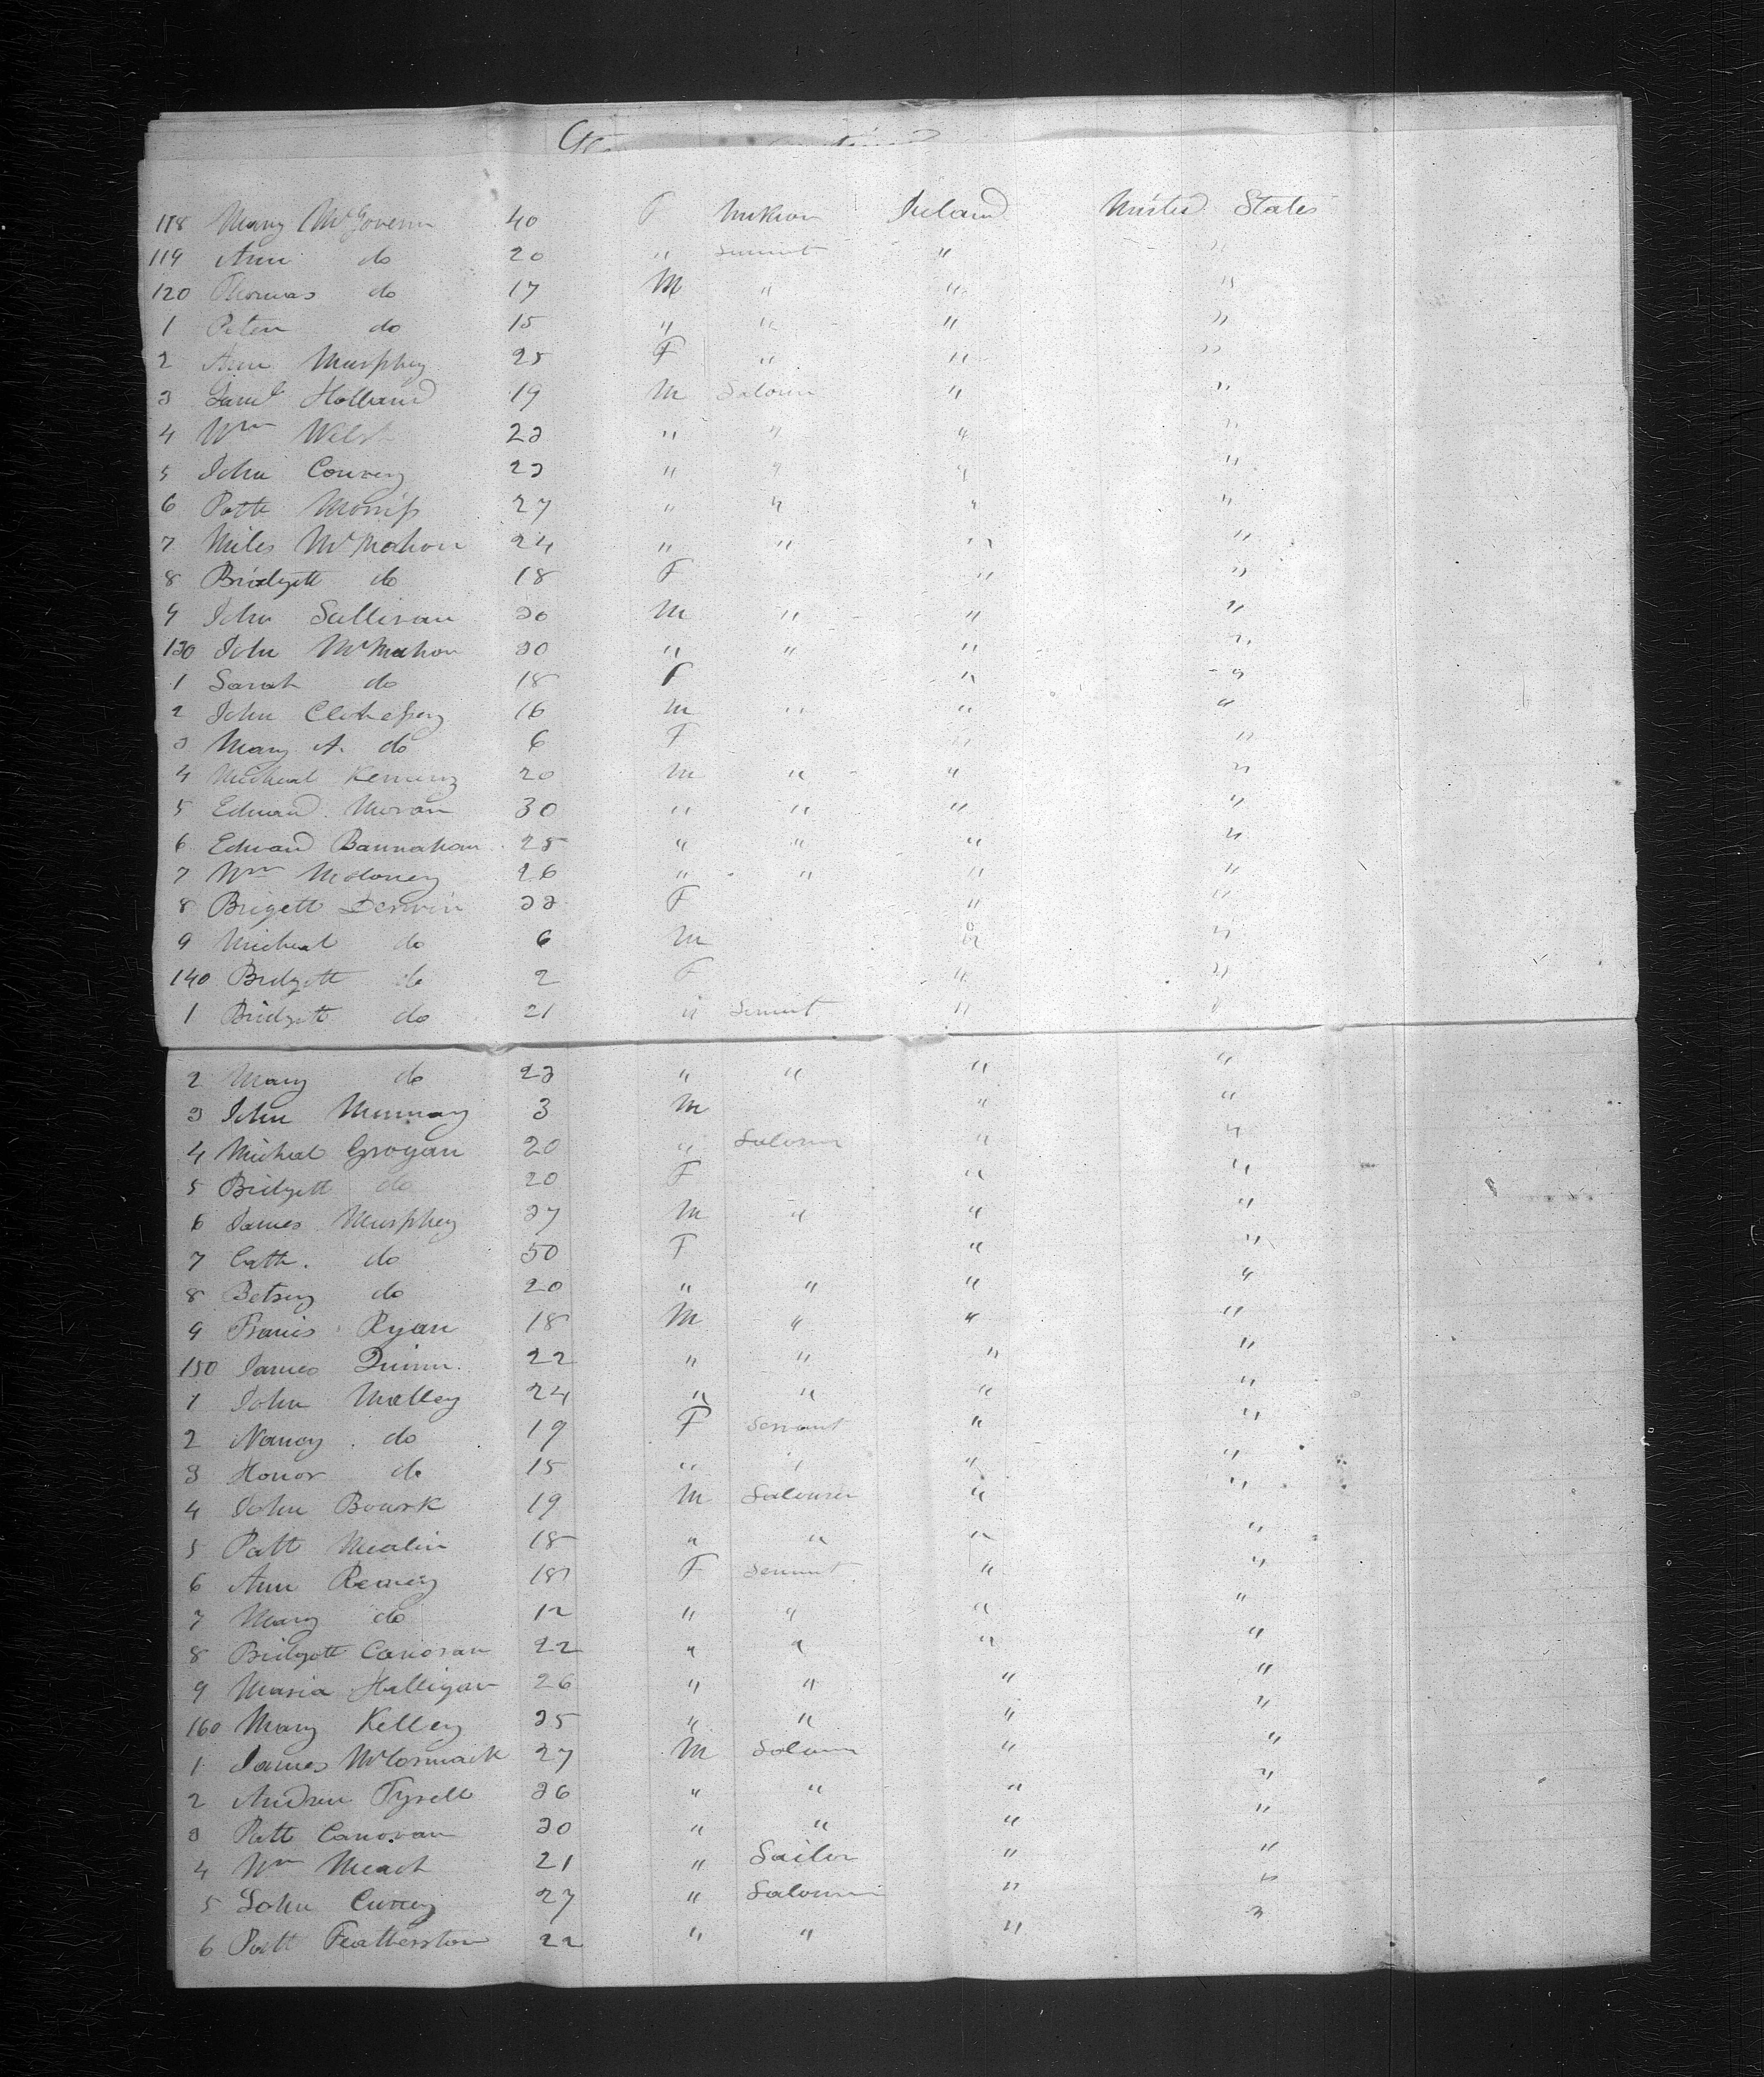 118 Mary McGovern 40 F Unknown Ireland United States
119 Ann do 20 " Servant " "
120 Thomas do 17 M " " "
1 Peter do 15 " " " "
2 Ann Murphey 25 F " " "
3 Danl Holland 19 M Labourer " "
4 Wm Welsh 23 " " " "
5 John Convey 23 " " " "
6 Patk Morriss 27 " " " "
7 Miles McMahon 24 " " " "
8 Bridgett do 18 F " "
9 John Sullivan 30 M " " "
130 John McMahon 30 " " " "
1 Sarah do 18 F " "
2 John 16 M " " "
3 Mary A. do 6 F " "
4 Micheal 20 M " " "
5 Edward Moran 30 " " " "
6 Edward Bannahan 25 " " " "
7 Wm Moloney 26 " " " "
8 Brigett Derwin 33 F " "
9 Micheal do 6 M " "
140 Bridgett do 2 F " "
1 Bridgett do 21 " Servant " "
2 Mary do 23 " " " "
3 John Murray 3 M " "
4 Micheal Grogan 20 " Labourer " "
5 Bridgett do 20 F " "
6 James Murphey 37 M " " "
7 Cath. do 50 F " "
8 Betsey do 20 " " " "
9 Francis Ryan 18 M " " "
150 James Quinn 22 " " " "
1 John Malley 24 " " " "
2 Nancy do 19 F Servant " "
3 Honor do 15 " " " "
4 John Bourk 19 M Labourer " "
5 Patt Mealin 18 " " " "
6 Ann 18 F Servant " "
7 Mary do 12 " " " "
8 Bridgett Canovan 22 " " " "
9 Maria Halligan 26 " " " "
160 Mary Kelley 35 " " " "
1 James McCormack 27 M Labourer " "
2 Andrew Tyrell 36 " " " "
3 Patt Canovan 30 " " " "
4 Wm Meach 21 " Sailor " "
5 John Currey 27 " Labourer " "
6 Patt Featherston 22 " " " "